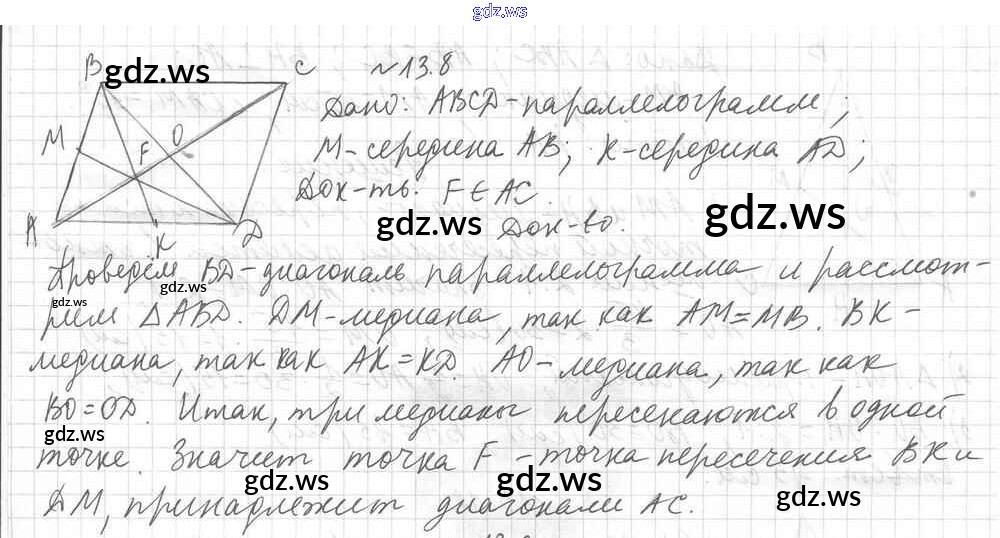 gdz.ws
B C №13.8
gdz.ws
Дано: ABCD-параллелограмм;
M O
F
M-середина AB; K-середина AD;
Док-ть: F∈AC.
gdz.ws
gdz.ws
A K D
Док-во.
Проведём BD-диагональ параллелограмма и рассмот-
gdz.ws
gdz.ws
рим △ABD. DM-медиана, так как AM=MB. BK-
медиана, так как AK=KD. AO-медиана, так как
BO=OD. Итак, три медианы пересекаются в одной
gdz.ws
точке. Значит точка F-точка пересечения BK и
gdz.ws
gdz.ws
gdz.ws
DM, принадлежит диагонали AC.